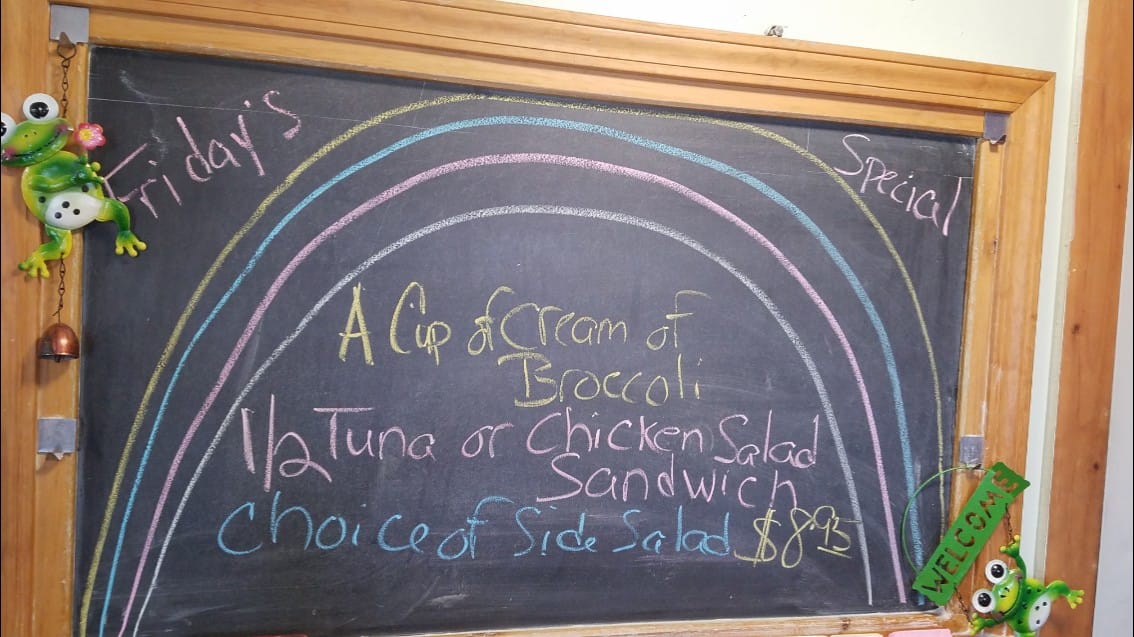 Friday's Special
A Cup of Cream of
Broccoli
1/2 Tuna or Chicken Salad
Sandwich
Choice of Side Salad $8.95
WELCOME